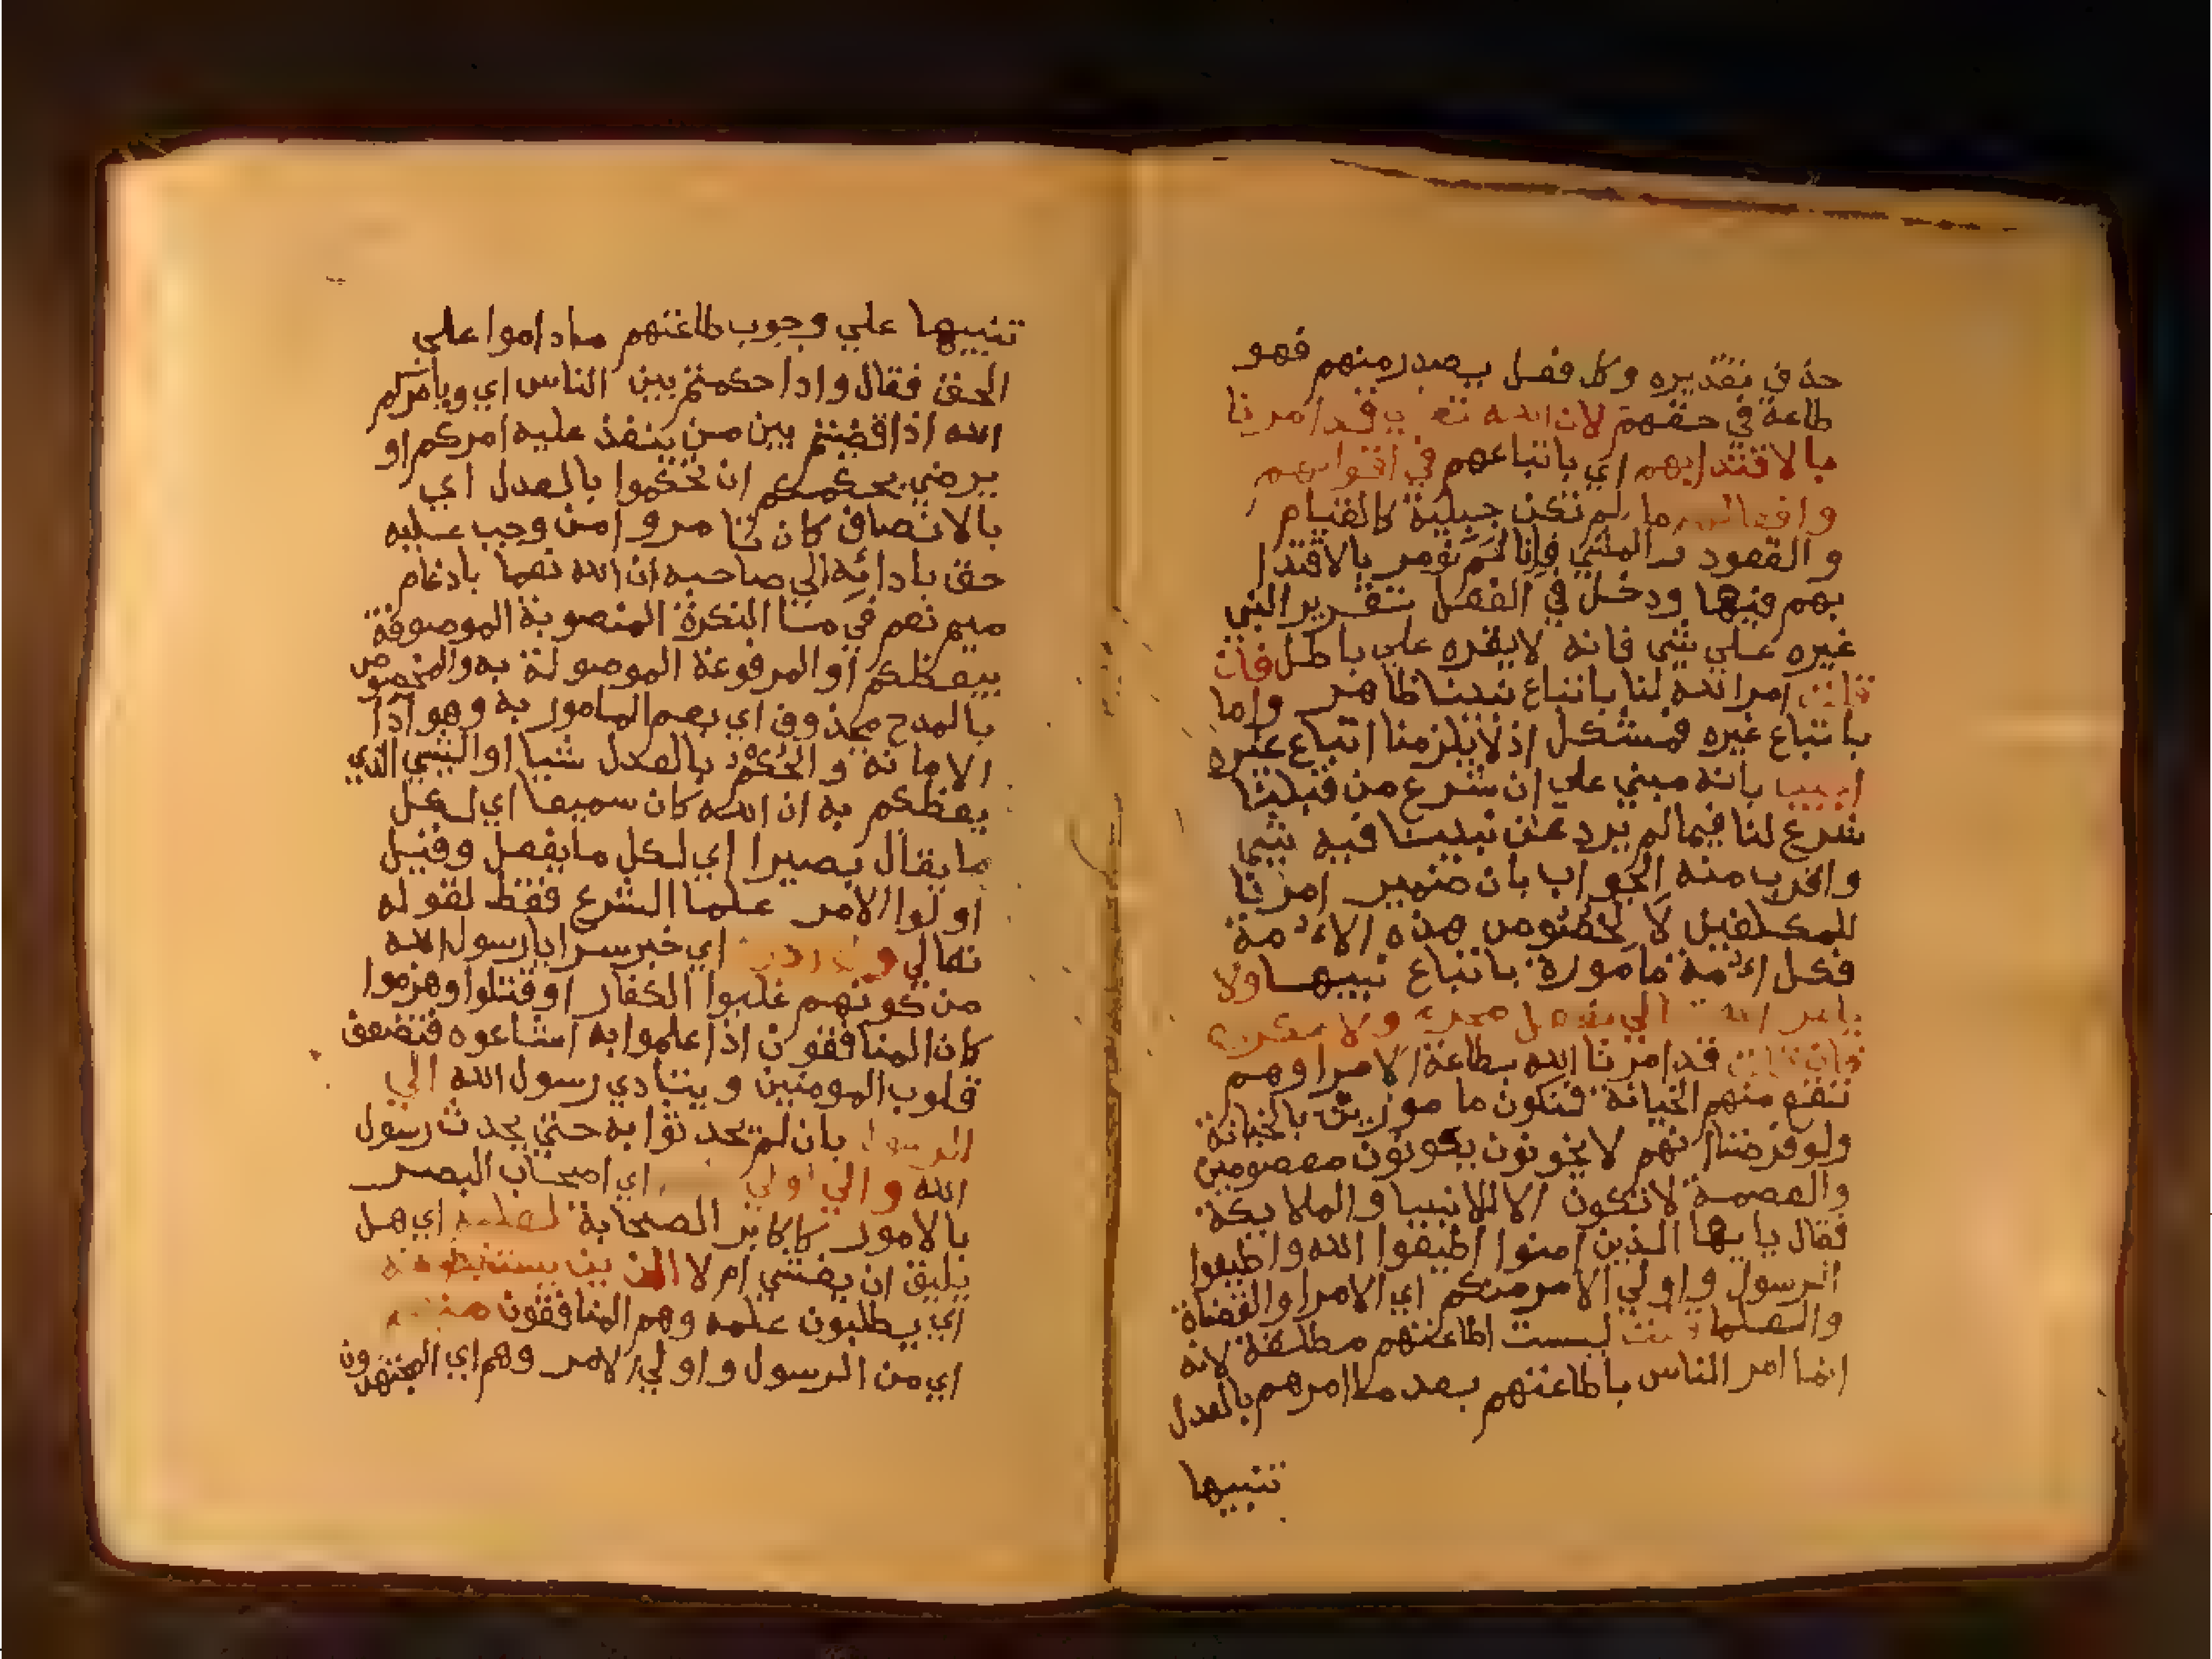 حذف تقديره وكل فعل يصدر منهم فهو
طاعة في حقهم لان الله تعالي قد امرنا
بالاقتدابهم اي باتباعهم في اقوالهم
وافعالهم مما لم تكن جبلية كالقيام
والقعود والمشي فإنا لم نومر بالاقتدا
بهم فيها ودخل في الفعل تقرير النبي
غيره علي شي فانه لا يقره علي باطل فان
قلت امر الله لنا باتباع نبينا ظاهر واما
باتباع غيره فمشكل اذ لا يلزمنا اتباع غيره
اجيب بانه مبني علي ان شرع من قبلنا
شرع لنا فيما لم يرد عن نبينا فيه شي
واقرب منه الجواب بان ضمير امرنا
للمكلفين لا لخصوص هذه الامة
فكل امة مامورة باتباع نبيها ولا
يامر الله الي بفعل محرم ولا مكروه
فان قلت قد امرنا الله بطاعة الامرا وهم
تقع منهم الخيانة فنكون مامورين بالخيانة
ولو فرضنا انهم لا يخونون يكونون معصومين
والعصمة لا تكون الا للانبيا والملايكة
فقال يايها الذين امنوا اطيعوا الله واطيعوا
الرسول واولي الامر منكم اي الامرا والقضاة
والعلما قلت ليست اطاعتهم مطلقة لانه
انما امر الناس باطاعتهم بعد ما امرهم بالعدل
تنبيها
تنبيها علي وجوب طاعتهم ماداموا علي
الحق فقال واذا حكمتم بين الناس اي ويامركم
الله اذا قضيتم بين من ينفذ عليه امركم او
يرضي بحكمكم ان تحكموا بالعدل اي
بالانصاف كان تامروا من وجب عليه
حق بادائه الي صاحبه ان الله نعما بادغام
ميم نعم في ما النكرة المنصوبة الموصوفة
بيعظكم او المرفوعة الموصولة به والمخصوص
بالمدح محذوف اي نعم المامور به وهو اداا
الامانة والحكم بالعدل شيا او الشي الذي
يعظكم به ان الله كان سميعا اي لكل
ما يقال بصيرا اي لكل ما يفعل وقيل
اولوا الامر علما الشرع فقط لقوله
تعالي ولو ردوه اي خبر سرايا رسول الله
من كونهم غلبوا الكفار او قتلوا وهزموا
كان المنافقون اذا علموا به اشاعوه فتضعف
قلوب المومنين ويتاذي رسول الله الي
الرسول بان لم يحدثوا به حتي يحدث رسول
الله والي اولي اي اصحاب البصر
بالامور كاكابر الصحابة لعلمه اي هل
يليق ان يفشي ام لا الذين يستنبطونه
اي يطلبون علمه وهم المنافقون منهم
اي من الرسول واولي الامر وهم اي المجتهدون